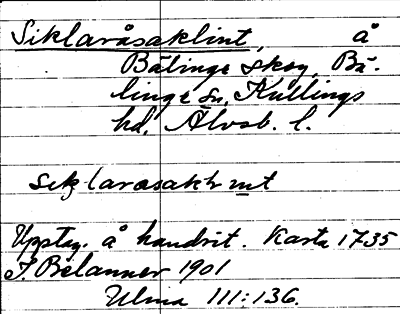 Siklaråsaklint, å
Bälinge skog, Bä-
linge sn, Kullings
hd, Älvsb. l.
Uppteg. å handrit. Karta 1735
J. Belanner 1901
Ulma 111:136.